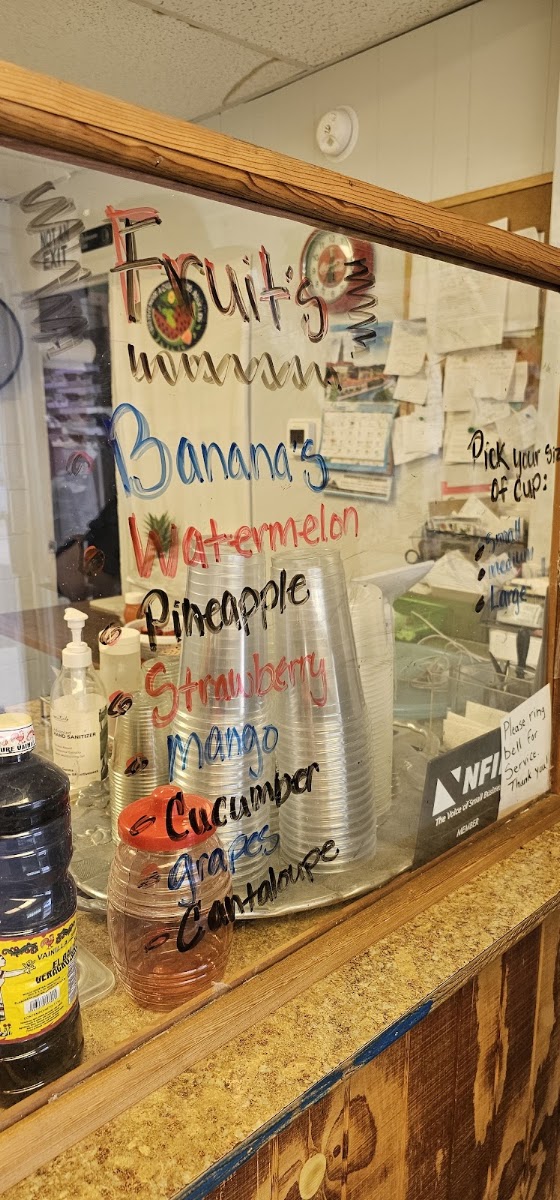 NOT AN
EXIT
Fruit's
Banana's
Watermelon
Pineapple
Strawberry
Mango
Cucumber
grapes
Cantaloupe
Pick your siz
of cup:
Small
medium
Large
HAND SANITIZER
Please ring
bell for
Service.
Thank you!
NFI
The Voice of Small Busin
MEMBER
VAINILLA